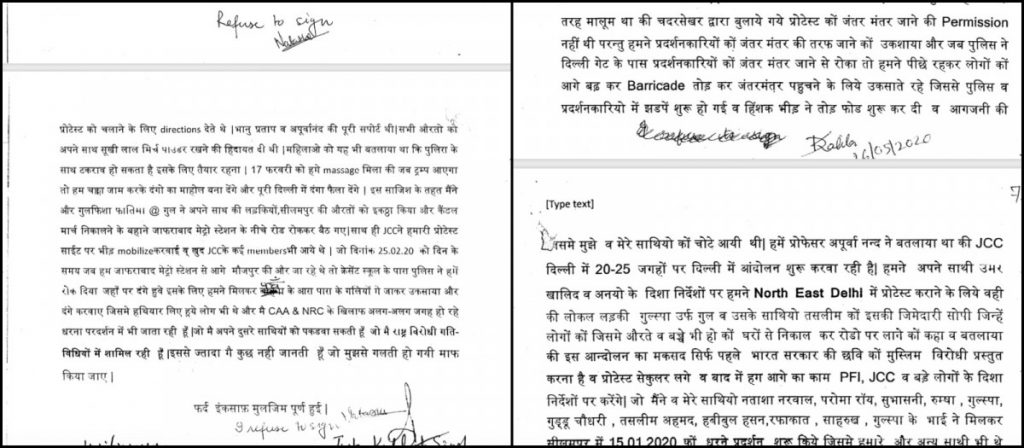 Refuse to sign
प्रोटेस्ट को चलाने के लिए directions देते थे |भानु प्रताप व अपूर्वानंद की पूरी सपोर्ट थी|सभी औरतो को
अपने साथ सूखी लाल मिर्च पाउडर रखने की हिदायत दी थी |महिलाओ को यह भी बतलाया था कि पुलिस के
साथ टकराव हो सकता है इसके लिए तैयार रहना | 17 फरवरी को हमे massage मिला की जब ट्रम्प आएगा
तो हम चक्का जाम करके दंगो का माहोल बना देंगे और पूरी दिल्ली में दंगा फैला देंगे | इस साजिश के तहत मैंने
और गुलफिशा फातिमा @ गुल ने अपने साथ की लडकियों,सीलमपुर की औरतों को इकठ्ठा किया और कैंडल
मार्च निकालने के बहाने जाफराबाद मेट्रो स्टेशन के नीचे रोड रोककर बैठ गए|साथ ही JCCने हमारी प्रोटेस्ट
साईट पर भीड़ mobilizeकरवाई व खुद JCCके कई membersभी आये थे | जो दिनांक 25.02.20 को दिन के
समय जब हम जाफराबाद मेट्रो स्टेशन से आगे मौजपुर की और जा रहे थे तो क्रेसेंट स्कूल के पास पुलिस ने हमें
रोक दिया जहाँ पर दंगे हुवे इसके लिए हमने मिलकर के आरा पारा के गलियों गे जाकर उकसाया और
दंगे करवाए जिसमे हथियार लिए हुये लोग भी थे और मै CAA & NRC के खिलाफ अलग-अलग जगह हो रहे
धरना परदर्शन में भी जाता रही हूँ|जो मै अपने दुसरे साथियों को पकडवा सकती हूँ जो मै राष्ट्र विरोधी गति-
विधियों में शामिल रही हूँ|इससे ज्तादा गै कुछ नही जानती हूँ जो मुझसे गलती हो गयी माफ
किया जाए |
फर्द इंकसाफ़ मुलजिम पूर्ण हुई |
I refuse to sign
तरह मालूम था की चदरसेखर द्वारा बुलाये गये प्रोटेस्ट कों जंतर मंतर जाने की Permission
नहीं थी परन्तु हमने प्रदर्शनकारियों कों जंतर मंतर की तरफ जाने कों उकशाया और जब पुलिस ने
दिल्ली गेट के पास प्रदर्शनकारियों कों जंतर मंतर जाने से रोका तो हमने पीछे रहकर लोगों कों
आगे बढ़ कर Barricade तोड़ कर जंतरमंत्र पहुचने के लिये उकसाते रहे जिससे पुलिस व
प्रदर्शनकारियो में झडपें शुरू हो गई व हिंशक भीड़ ने तोड़ फोड शुरू कर दी व आगजनी की
16/05/2020
7
[Type text]
जिसमे मुझे व मेरे साथियो कों चोटे आयी थी| हमें प्रोफेसर अपूर्वा नन्द ने बतलाया था की JCC
दिल्ली में 20-25 जगहों पर दिल्ली में आंदोलन शुरू करवा रही है| हमने अपने साथी उमर
खालिद व अनयो के दिशा निर्देशों पर हमने North East Delhi में प्रोटेस्ट कराने के लिये वही
की लोकल लड़की गुल्स्पा उर्फ गुल व उसके साथियो तसलीम कों इसकी जिमेदारी सोपी जिन्हें
लोगों कों जिसमे औरते व बच्चे भी हो कों घरों से निकाल कर रोडो पर लाने कों कहा व बतलाया
की इस आन्दोलन का मकसद सिर्फ पहले भारत सरकार की छवि कों मुस्लिम विरोधी प्रस्तुत
करना है व प्रोटेस्ट सेकुलर लगे व बाद में हम आगे का काम PFI, JCC व बड़े लोगों के दिशा
निर्देशों पर करेंगे| जो मैंने व मेरे साथियो नताशा नरवाल, परोमा रॉय, सुभासनी, रुम्षा , गुल्स्पा,
गुड्डू चौधरी , तसलीम अहमद, हबीबुल हसन,रफाकात , साहरुख , गुल्स्पा के भाई ने मिलकर
सीलमपुर में 15.01.2020 कों धरने प्रदर्शन शुरू किये जिसमे हमारे और अन्य साथी भी थे